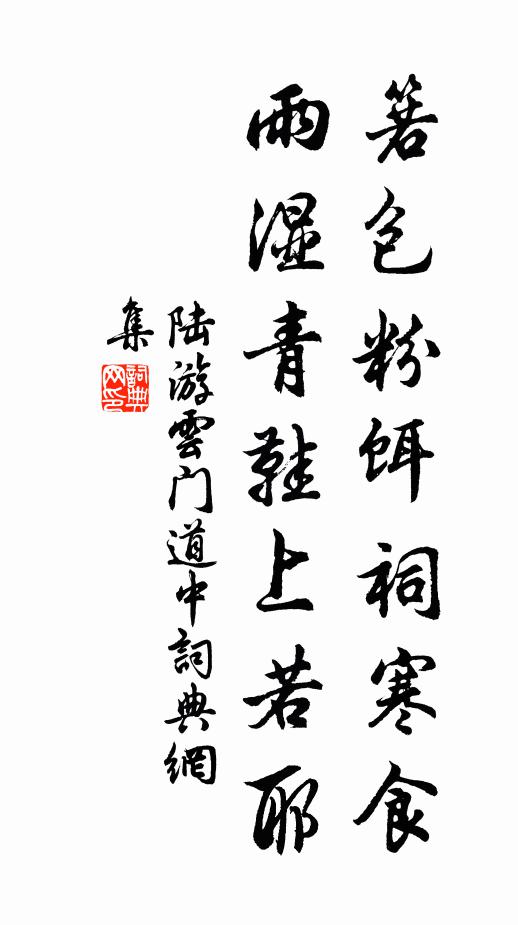 箬包粉餌祠寒食
雨湿青鞋上若耶
陸游雲門道中詞典網
集
詞典
网印